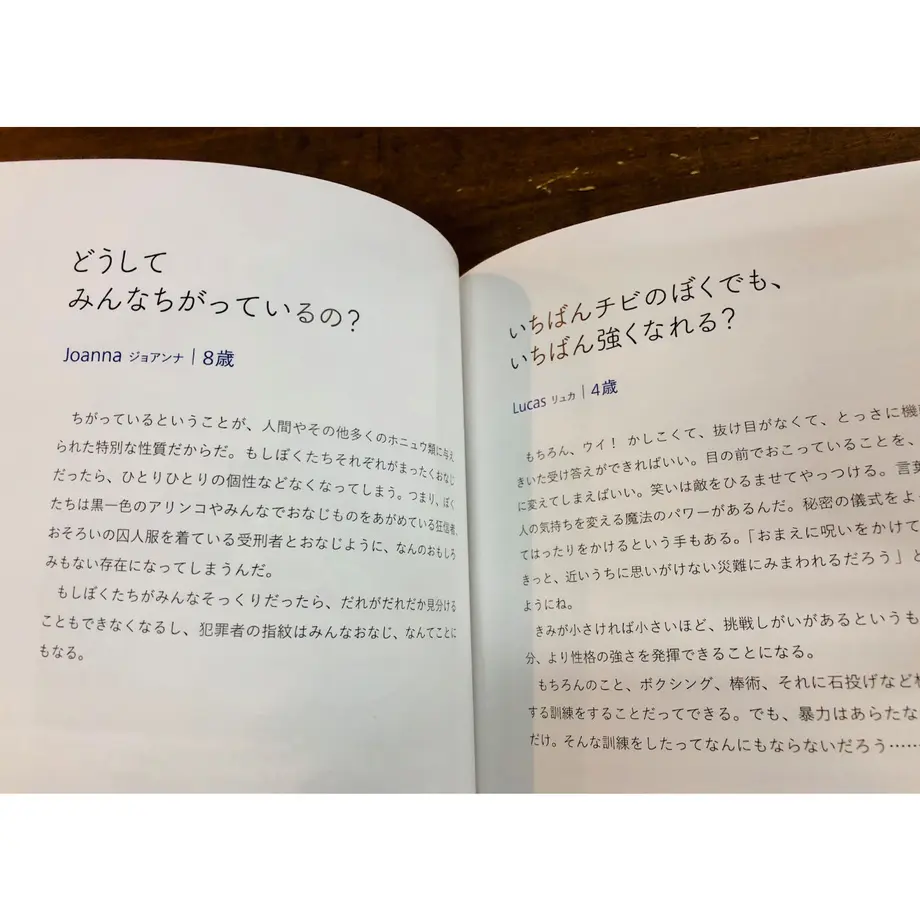 どうして
みんなちがっているの?
Joanna ジョアンナ | 8歳
ちがっているということが、人間やその他多くのホニュウ類に与え
られた特別な性質だからだ。もしぼくたちそれぞれがまったくおなじ
だったら、ひとりひとりの個性などなくなってしまう。つまり、ぼく
たちは黒一色のアリンコやみんなでおなじものをあがめている狂信者、
おそろいの囚人服を着ている受刑者とおなじように、なんのおもしろ
みもない存在になってしまうんだ。
もしぼくたちがみんなそっくりだったら、だれがだれだか見分ける
こともできなくなるし、犯罪者の指紋はみんなおなじ、なんてことに
もなる。
いちばんチビのぼくでも、
いちばん強くなれる?
Lucas リュカ | 4歳
もちろん、ウイ! かしこくて、抜け目がなくて、とっさに機
きいた受け答えができればいい。目の前でおこっていることを、
に変えてしまえばいい。笑いは敵をひるませてやっつける。言葉
人の気持ちを変える魔法のパワーがあるんだ。秘密の儀式をよ
てはったりをかけるという手もある。「おまえに呪いをかけて
きっと、近いうちに思いがけない災難にみまわれるだろう」と
ようにね。
きみが小さければ小さいほど、挑戦しがいがあるというも
分、より性格の強さを発揮できることになる。
もちろんのこと、ボクシング、棒術、それに石投げなど
する訓練をすることだってできる。でも、暴力はあらたな
だけ。そんな訓練をしたってなんにもならないだろう……